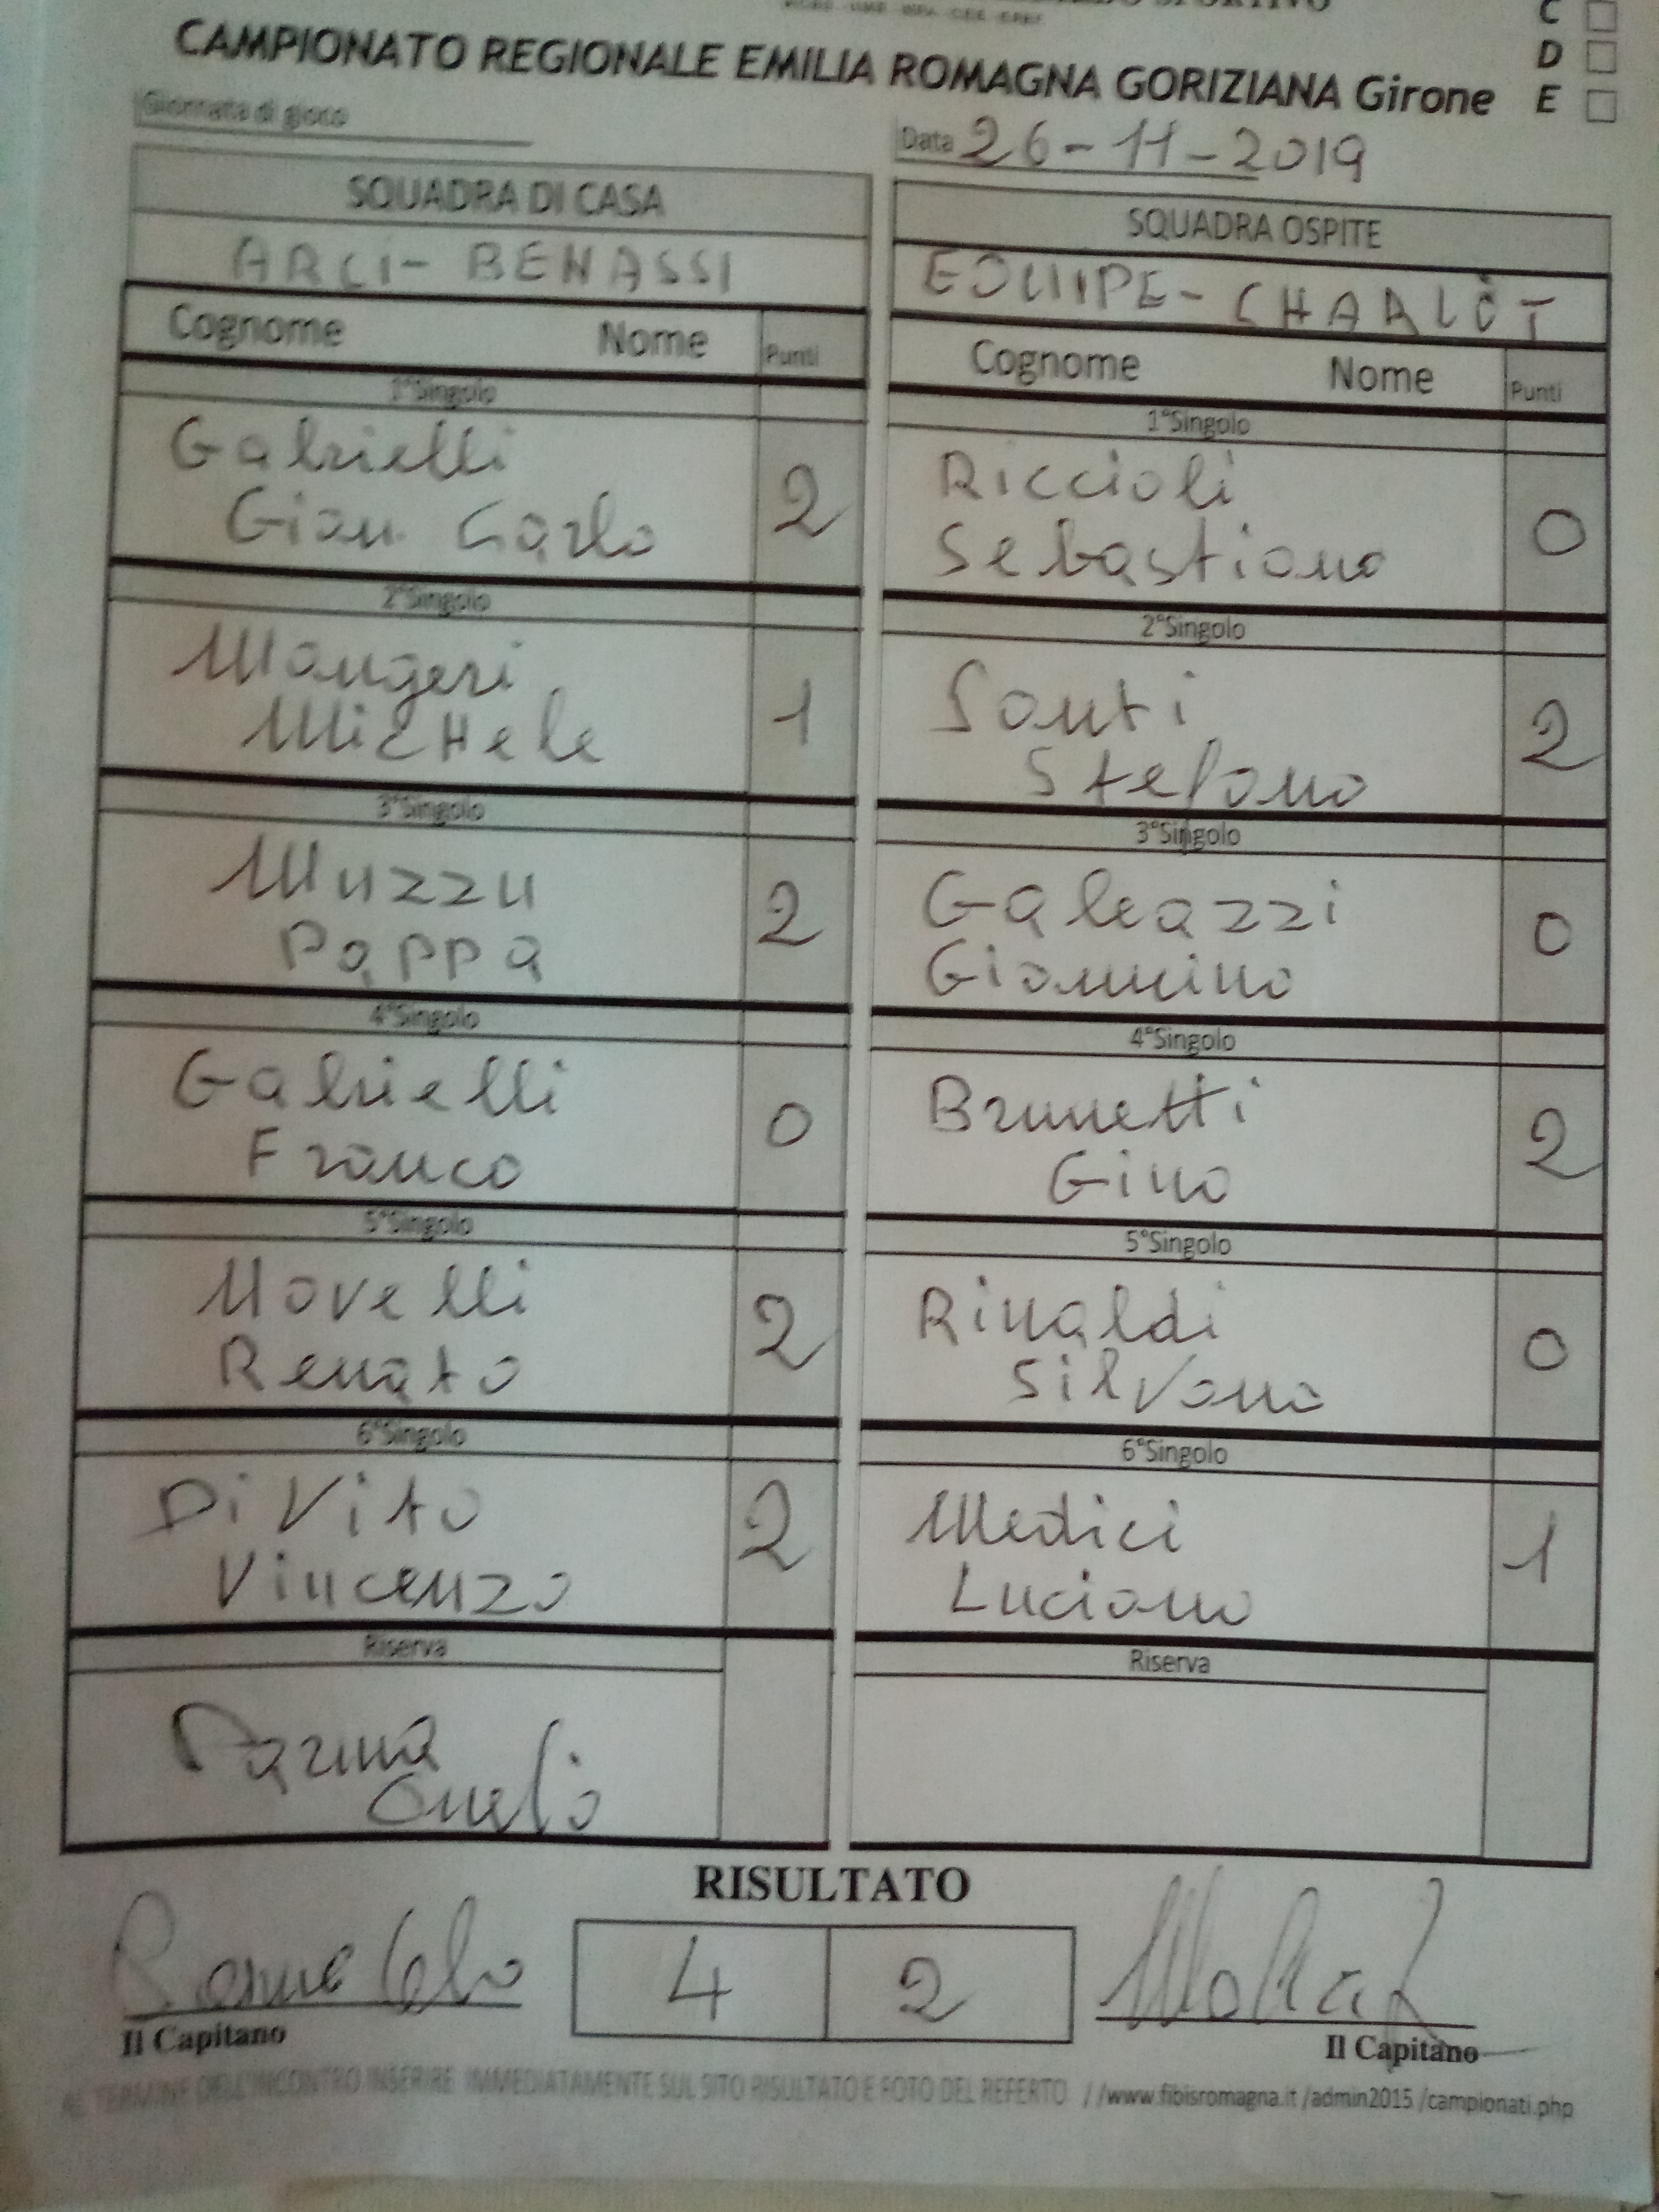 SPORTIVO
C
D
CAMPIONATO REGIONALE EMILIA ROMAGNA GORIZIANA Girone E
Giornata di gioco
Data 26-11-2019
SQUADRA DI CASA
ARCI-BENASSI
Cognome Nome Punti
1°Singolo
Gabrielli
Gian Carlo 2
2°Singolo
Maugeri
Michele 1
3°Singolo
Muzzu
Pappa 2
4°Singolo
Gabrielli
Franco 0
5°Singolo
Novelli
Renato 2
6°Singolo
Di Vito
Vincenzo 2
Riserva
Parma
SQUADRA OSPITE
EQUIPE-CHARLÒT
Cognome Nome Punti
1°Singolo
Riccioli
Sebastiano 0
2°Singolo
Santi
Stefano 2
3°Singolo
Galeazzi
Giannino 0
4°Singolo
Brunetti
Gino 2
5°Singolo
Rinaldi
Silvano 0
6°Singolo
Medici
Luciano 1
Riserva
RISULTATO
4 2
Il Capitano
Il Capitano
AL TERMINE DELL'INCONTRO INSERIRE IMMEDIATAMENTE SUL SITO RISULTATO E FOTO DEL REFERTO //www.fibisromagna.it /admin2015 /campionati.php